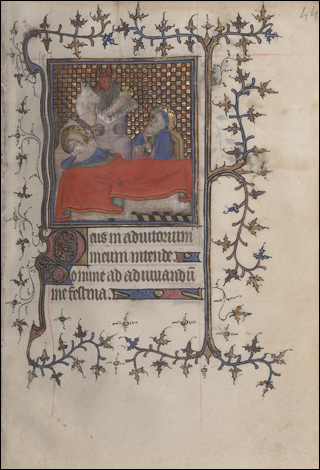 44
Deus in adiutorium
meum intende
Domine ad adiuuandū
me festina.